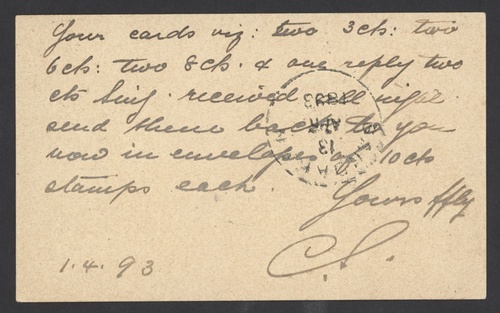 Your cards viz: two 3cts: two
6cts: two 8cts. & one reply two
cts being received all right.
send them back to you
now in envelopes of 10cts
stamps each.
Yours ffly
C.S.
1.4.93
APR
13
1893